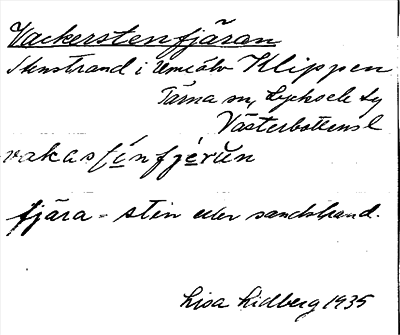 Vackerstenfjäran
Stenstrand i Umeälv Klippen
Tärna sn, Lycksele lg
Västerbottens l
vakastínfjérun
fjära - sten eller sandstrand.
Lisa Lidberg 1935